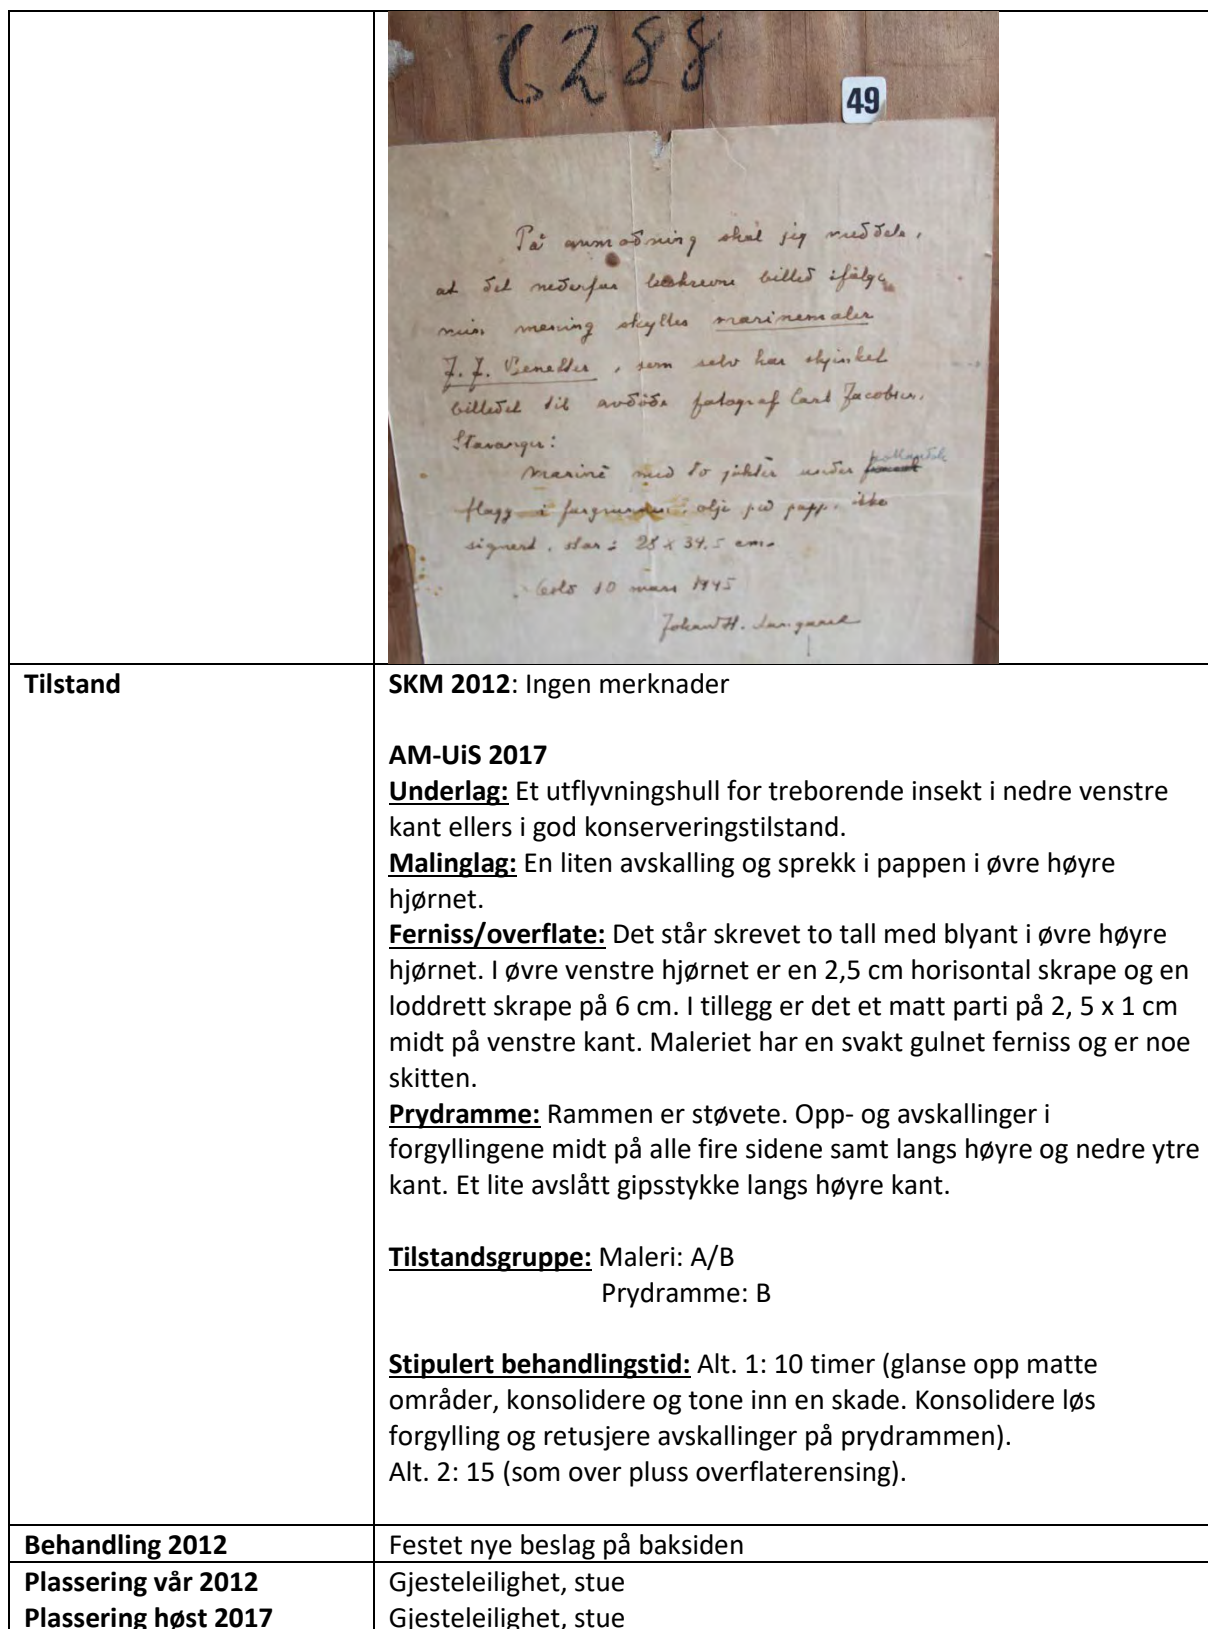 6288
49
På anmodning skal jeg meddele,
at det nedenfor beskrevne billed ifølge
min mening skylles marinemaler
J. J. Benetter, som selv har skjænket
billedet til avdøde fotograf Carl Jacobsen,
Stavanger:
Marine med to jakter under
flagg i forgrunnen, olje på papp, ikke
signert, stør: 28 x 34.5 cm.
Oslo 10 mars 1945
Johan H. Langaard
Tilstand
SKM 2012: Ingen merknader
AM-UiS 2017
Underlag: Et utflyvningshull for treborende insekt i nedre venstre
kant ellers i god konserveringstilstand.
Malinglag: En liten avskalling og sprekk i pappen i øvre høyre
hjørnet.
Ferniss/overflate: Det står skrevet to tall med blyant i øvre høyre
hjørnet. I øvre venstre hjørnet er en 2,5 cm horisontal skrape og en
loddrett skrape på 6 cm. I tillegg er det et matt parti på 2, 5 x 1 cm
midt på venstre kant. Maleriet har en svakt gulnet ferniss og er noe
skitten.
Prydramme: Rammen er støvete. Opp- og avskallinger i
forgyllingene midt på alle fire sidene samt langs høyre og nedre ytre
kant. Et lite avslått gipsstykke langs høyre kant.
Tilstandsgruppe: Maleri: A/B
Prydramme: B
Stipulert behandlingstid: Alt. 1: 10 timer (glanse opp matte
områder, konsolidere og tone inn en skade. Konsolidere løs
forgylling og retusjere avskallinger på prydrammen).
Alt. 2: 15 (som over pluss overflaterensing).
Behandling 2012 Festet nye beslag på baksiden
Plassering vår 2012 Gjesteleilighet, stue
Plassering høst 2017 Gjesteleilighet, stue